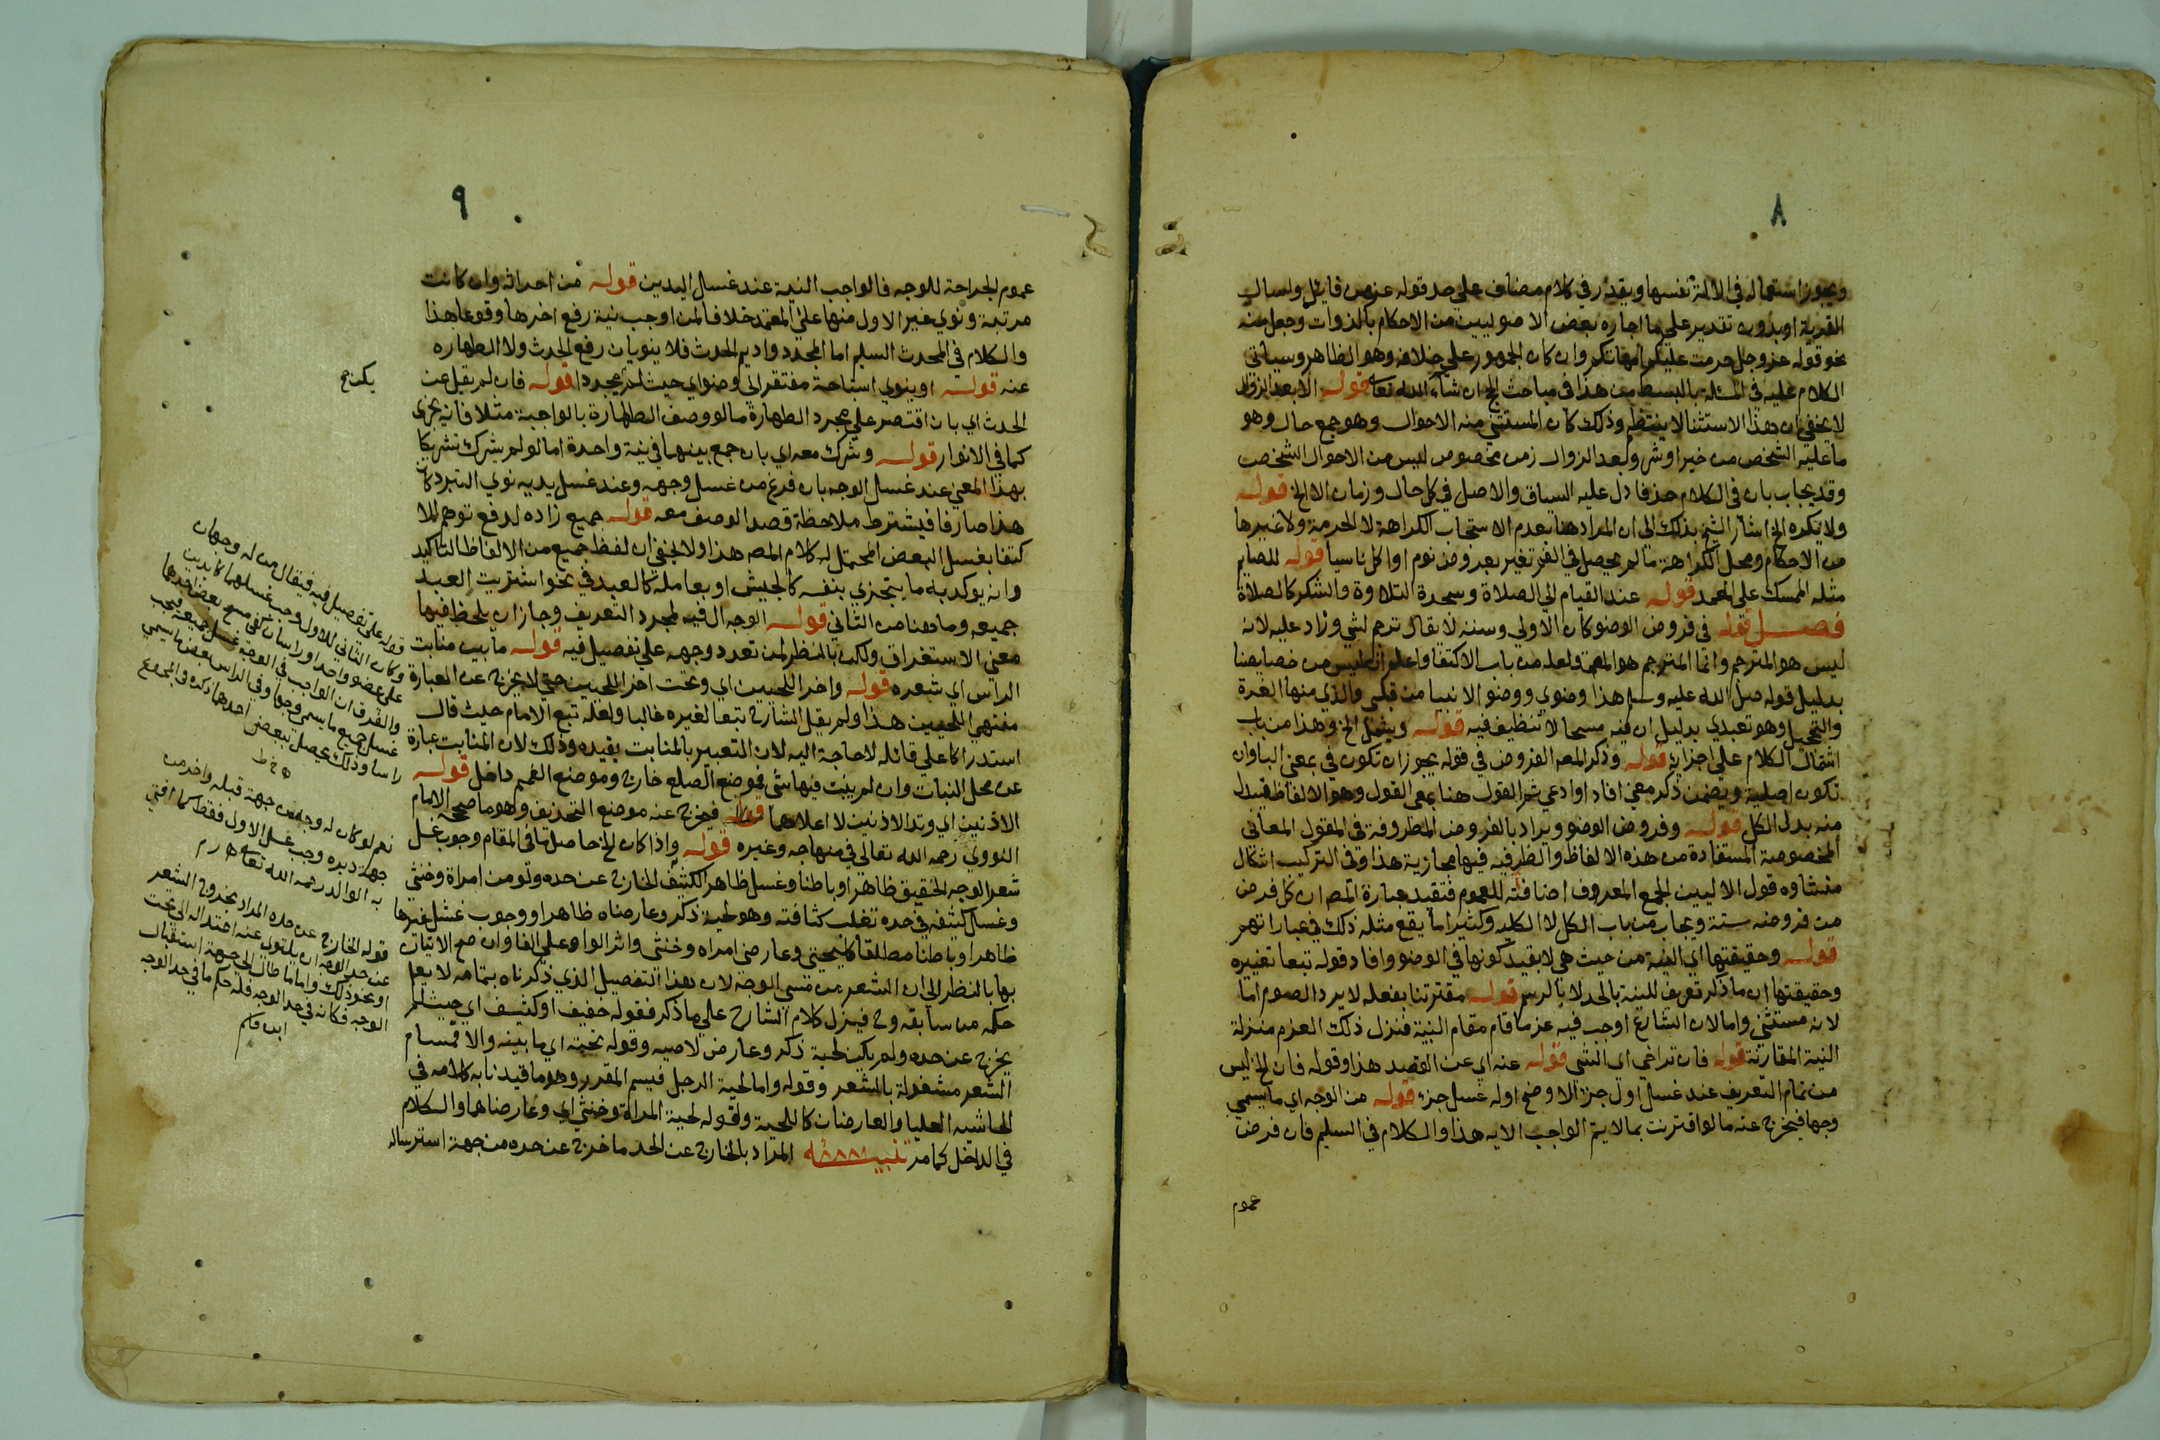 ٨
ويجوز استعماله في الالة نفسها ويقدر في كلام مضاف علي حد قوله عز من قايل واسال
القرية او بدون تقدير علي ما اجازه بعض الاصوليين من الاحكام بالذوات وجعل منه
نحو قوله عز وجل حرمت عليكم امهاتكم وان كان الجمهور علي خلافه وهو الظاهر وسياتي
الكلام عليه في المسئلة بالبسط من هذا في مباحث الحج ان شاء الله تعالى قوله الا بعد الزوال
لا يخفي ان هذا الاستثنا لا ينتظم وذلك كان المستثني منه الاحوال وهو جمع حال وهو
ما عليه الشخص من خير او شر وبعد الزوال زمن مخصوص ليس من الاحوال الشخص
وقد يجاب بان في الكلام حذفا دل عليه السياق والاصل في كل حال وزمان الا الخ قوله
ولا يكره الخ اشار الشيخ بذلك الي ان المراد هنا بعدم الاستحباب الكراهة لا الحرمة ولا غيرها
من الاحكام ومحل الكراهة ما لم يحصل في الفم تغير بعد ومن نوم او اكل ناسيا قوله للصايم
مثله الممسك علي المعتمد قوله عند القيام الي الصلاة وسجدة التلاوة والشكر كالصلاة
فصل قوله في فروض الوضو كان الاولي وسننه لا يقال ترجم لشي وزاد عليه لانه
ليس هو المترجم وانما المترجم هو المص ولعله من باب الاكتفا واعلم انه ليس من خصايصنا
بدليل قوله صلى الله عليه وسلم هذا وضوي ووضو الانبيا من قبلي والذي منها الغرة
والتحجيل وهو تعبدي بدليل ان فيه مسحا لا تنظيف فيه قوله ويشمل الخ وهذا من باب
اشتمال الكلام علي اجزايه قوله وذكر المص الفروض في قوله يجوز ان تكون في بمعني الباوان
تكون اصلية ويضمن ذكر معني افاد او ادعي ثم القول هنا بمعي القول وهو الالفاظ فيبدل
منه بدل الكل قوله وفروض الوضو ويراد بالفروض المظروفة في المقول المعاني
المخصوصة المستفادة من هذه الالفاظ والظرفيه فيها مجازية هذا وفي التركيب اشكال
منشاوه قول الاليين الجمع المعروف اضافته للعموم فتقيد عبارة المص ان كل فرض
من فروضه ستة ويجاب من باب الكل لا الكليه وكثيرا ما يقع مثله ذلك في عباراتهم
قوله وحقيقتها اي النية من حيث هي لا بقيد كونها في الوضو وافاد قوله تبعا تغييره
وحقيقتها ان ما ذكر تعريف للنية بالحد لا بالرسم قوله مقترنا بفعله لا يرد الصوم اما
لانه مستثني واما لان الشارع اوجب فيه عزما قام مقام النية فنزل ذلك العزم منزلة
النية المقارنة قوله فان تراخي اي الشي قوله عنه اي عن القصد هذا وقوله فان الخ ليس
من تمام التعريف عند غسل اول جزء الاوضح اوله غسل جزء قوله من الوجه اي ما يسمي
وجها فيخرج عنه ما لو اقترنت بما لا يتم الواجب الا به هذا والكلام في السليم فان فرض
عموم
٩
عموم الجراحة للوجه فالواجب النية عند غسل اليدين قوله من احداثه وان كانت
مرتبة ونوي غير الاول منها علي المعتمد خلافا لمن اوجب نية رفع اخرها وقوعا هذا
والكلام في المحدث السليم اما المجدد وادايم الحدث فلا ينويان رفع الحدث ولا الطهاره
عنه قوله او ينوي استباحة مفتقر الي وضو اي حيث لم مجردا قوله فان لم يقل عن
يكن صح
الحدث اي بان اقتصر علي مجرد الطهارة ما لو وصف الطهارة بالواجبة مثلا فانه يجزي
كما في الانوار قوله وشرك معه اي بان جمع بينهما في نية واحدة اما لو لم شرك تشريكا
بهذا المعني عند غسل الوجه بان فرغ من غسل وجهه وعند غسل يديه نوي التبرد كان
هذا صارفا فيشترط ملاحظة قصد الوصف معه قوله جميع زاده لدفع توهم الا
كتفا بغسل البعض المحتمل له كلام المص هذا ولا يخفي ان لفظ جميع من الالفاظ التاكيد
وانه يوكد به ما يتجزي بنفسه كالجيش او بعامله كالعبد في نحو اشتريت العبد
جميعه وما هنا من الثاني قوله الوجه ال فيه لمجرد التعريف وجاز ان يلحظ فيها
معني الاستغراق ولكن بالنظر لمن تعدد وجهه علي تفصيل فيه قوله ما بين منابت
الراس اي شعره قوله واخر اللحيين اي وتحت اخر اللحيين حتي لا يخرج عن العبارة
منتهي اللحيين هذا ولم يقل الشارح تبعا لغيره غالبا ولعله تبع الامام حيث قال
استدراكا علي قائله لا حاجة اليه لان التعبير بالمنابت بقيده وذلك لان المنابت عبارة
عن محل النبات وان لم ينبت فيها شي فموضع الصلع خارج وموضع الغمم داخل قوله
الاذنين اي وتد الاذنين لا اعلاهما قوله فيخرج عنه موضع التحذيف وهو ما صححه الامام
النووي رحمه الله تعالي في منهاجه وغيره قوله واذا كان الخ حاصل ما في المقام وجوب غسل
شعر الوجه الخفيف ظاهرا وباطنا وغسل ظاهر الكثيف الخارج عن حده ولو من امراة وخنثي
وغسل كثيفه في حده تغلب كثافته وهو لحية ذكر وعارضاه ظاهرا ووجوب غسل غيرها
ظاهرا وباطنا مطلقا كلحيتي وعارضي امراه وخنثي واثر الواو علي الفاوان صح الاتيان
بها بالنظر الي ان الشعر من مسمي الوجه لان هذا التفصيل الذي ذكرناه بتمامه لا يعلم
حكمه من سابقه وح فينزل كلام الشارح علي ما ذكر فقوله خفيف او كثيف اي حيث لم
يخرج عن حده ولم يكن لحية ذكر وعارض لاصيه وقوله تحته اي ما بينه والاقسام
الشعر مشغولة بالشعر وقوله واما لحية الرجل قسيم المقدر وهو ما قيدنا به كلامه في
الحاشيه العليا والعارضان كاللحية وقوله لحية المراة وخنثي اي وعارضاهما والكلام
في الداخل كما مر تنبيه المراد بالخارج عن الحد ما خرج عن حده من جهة استرساله
قوله علي تفصيل فيه فيقال من له وجهان
وكان الثاني للاول وجب غسلهما كاليدين
علي عضو واحد او راسان كفي مسح بعض احدهما
والفرق ان الواجب في الوجه غسل جميعه فيجب
غسل جميع ما يسمي وجها وفي الراس بعض ما يسمي
راسا وذلك يحصل ببعض احدهما ذكره في المجموع
ه خ ط
نعم لو كان له وجه من جهة قبله واخر من
جهة دبره وجب غسل الاول فقط كما افتي
به الوالد رحمه الله تعالي ه رم
قوله الخارج عن حده المراد بخروج الشعر
عن حد الوجه ان يلتوي عنه امتداله الي تحت
او نحو ذلك واما ما طال الي جهة استقبال
الوجه فكانه في حد الوجه فله حكم ما في حد الوجه
ابن قاسم